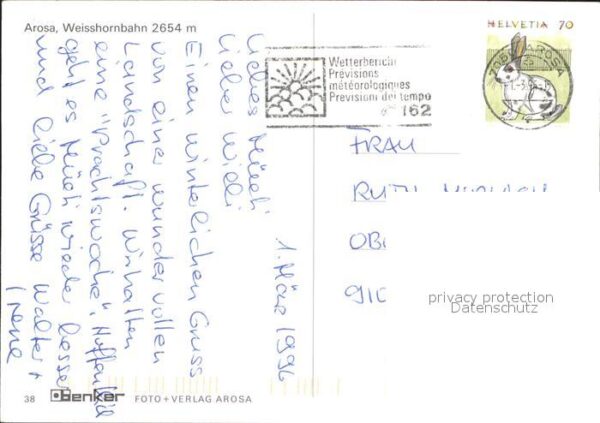 Arosa, Weisshornbahn 2654 m
HELVETIA 70
AROSA
Wetterbericht
Prévisions
météorologiques
Previsioni del tempo
162
1. März 1996
Liebes Müeti
Lieber Willi
Einen winterlichen Gruss
von einer wundervollen
Landschaft. Wir hatten
eine "Prachtswoche". Hoffentlich
geht es Müeti wieder besser
und liebe Grüsse Walter +
Irene
FRAU
RUTH
OB
privacy protection
Datenschutz
38 Benker FOTO + VERLAG AROSA